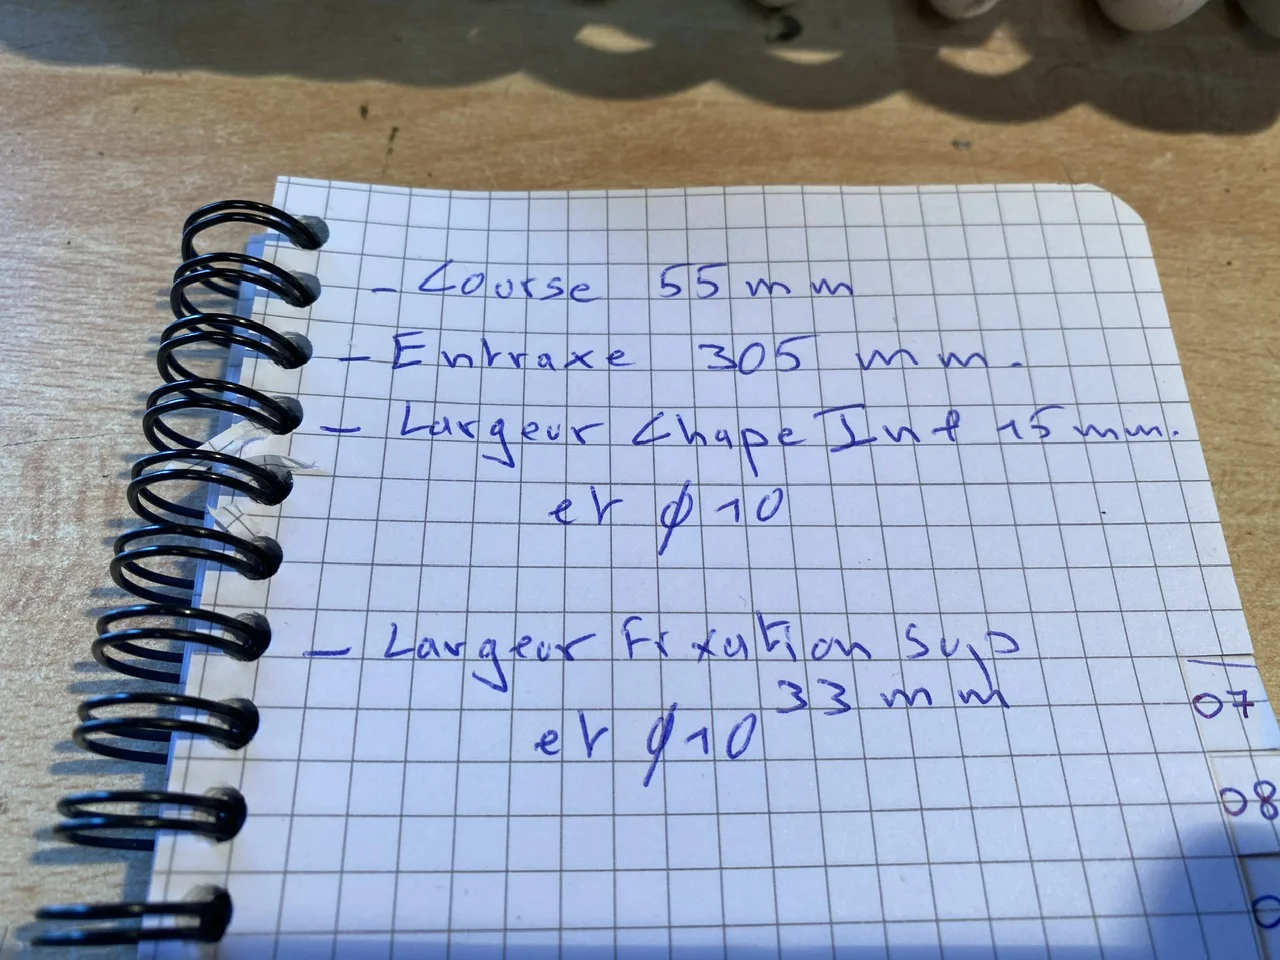 - Course 55 mm
- Entraxe 305 mm.
- Largeur Chape Inf 15 mm.
et ϕ 10
- Largeur Fixation Sup
33 mm
et ϕ 10
07
08
0